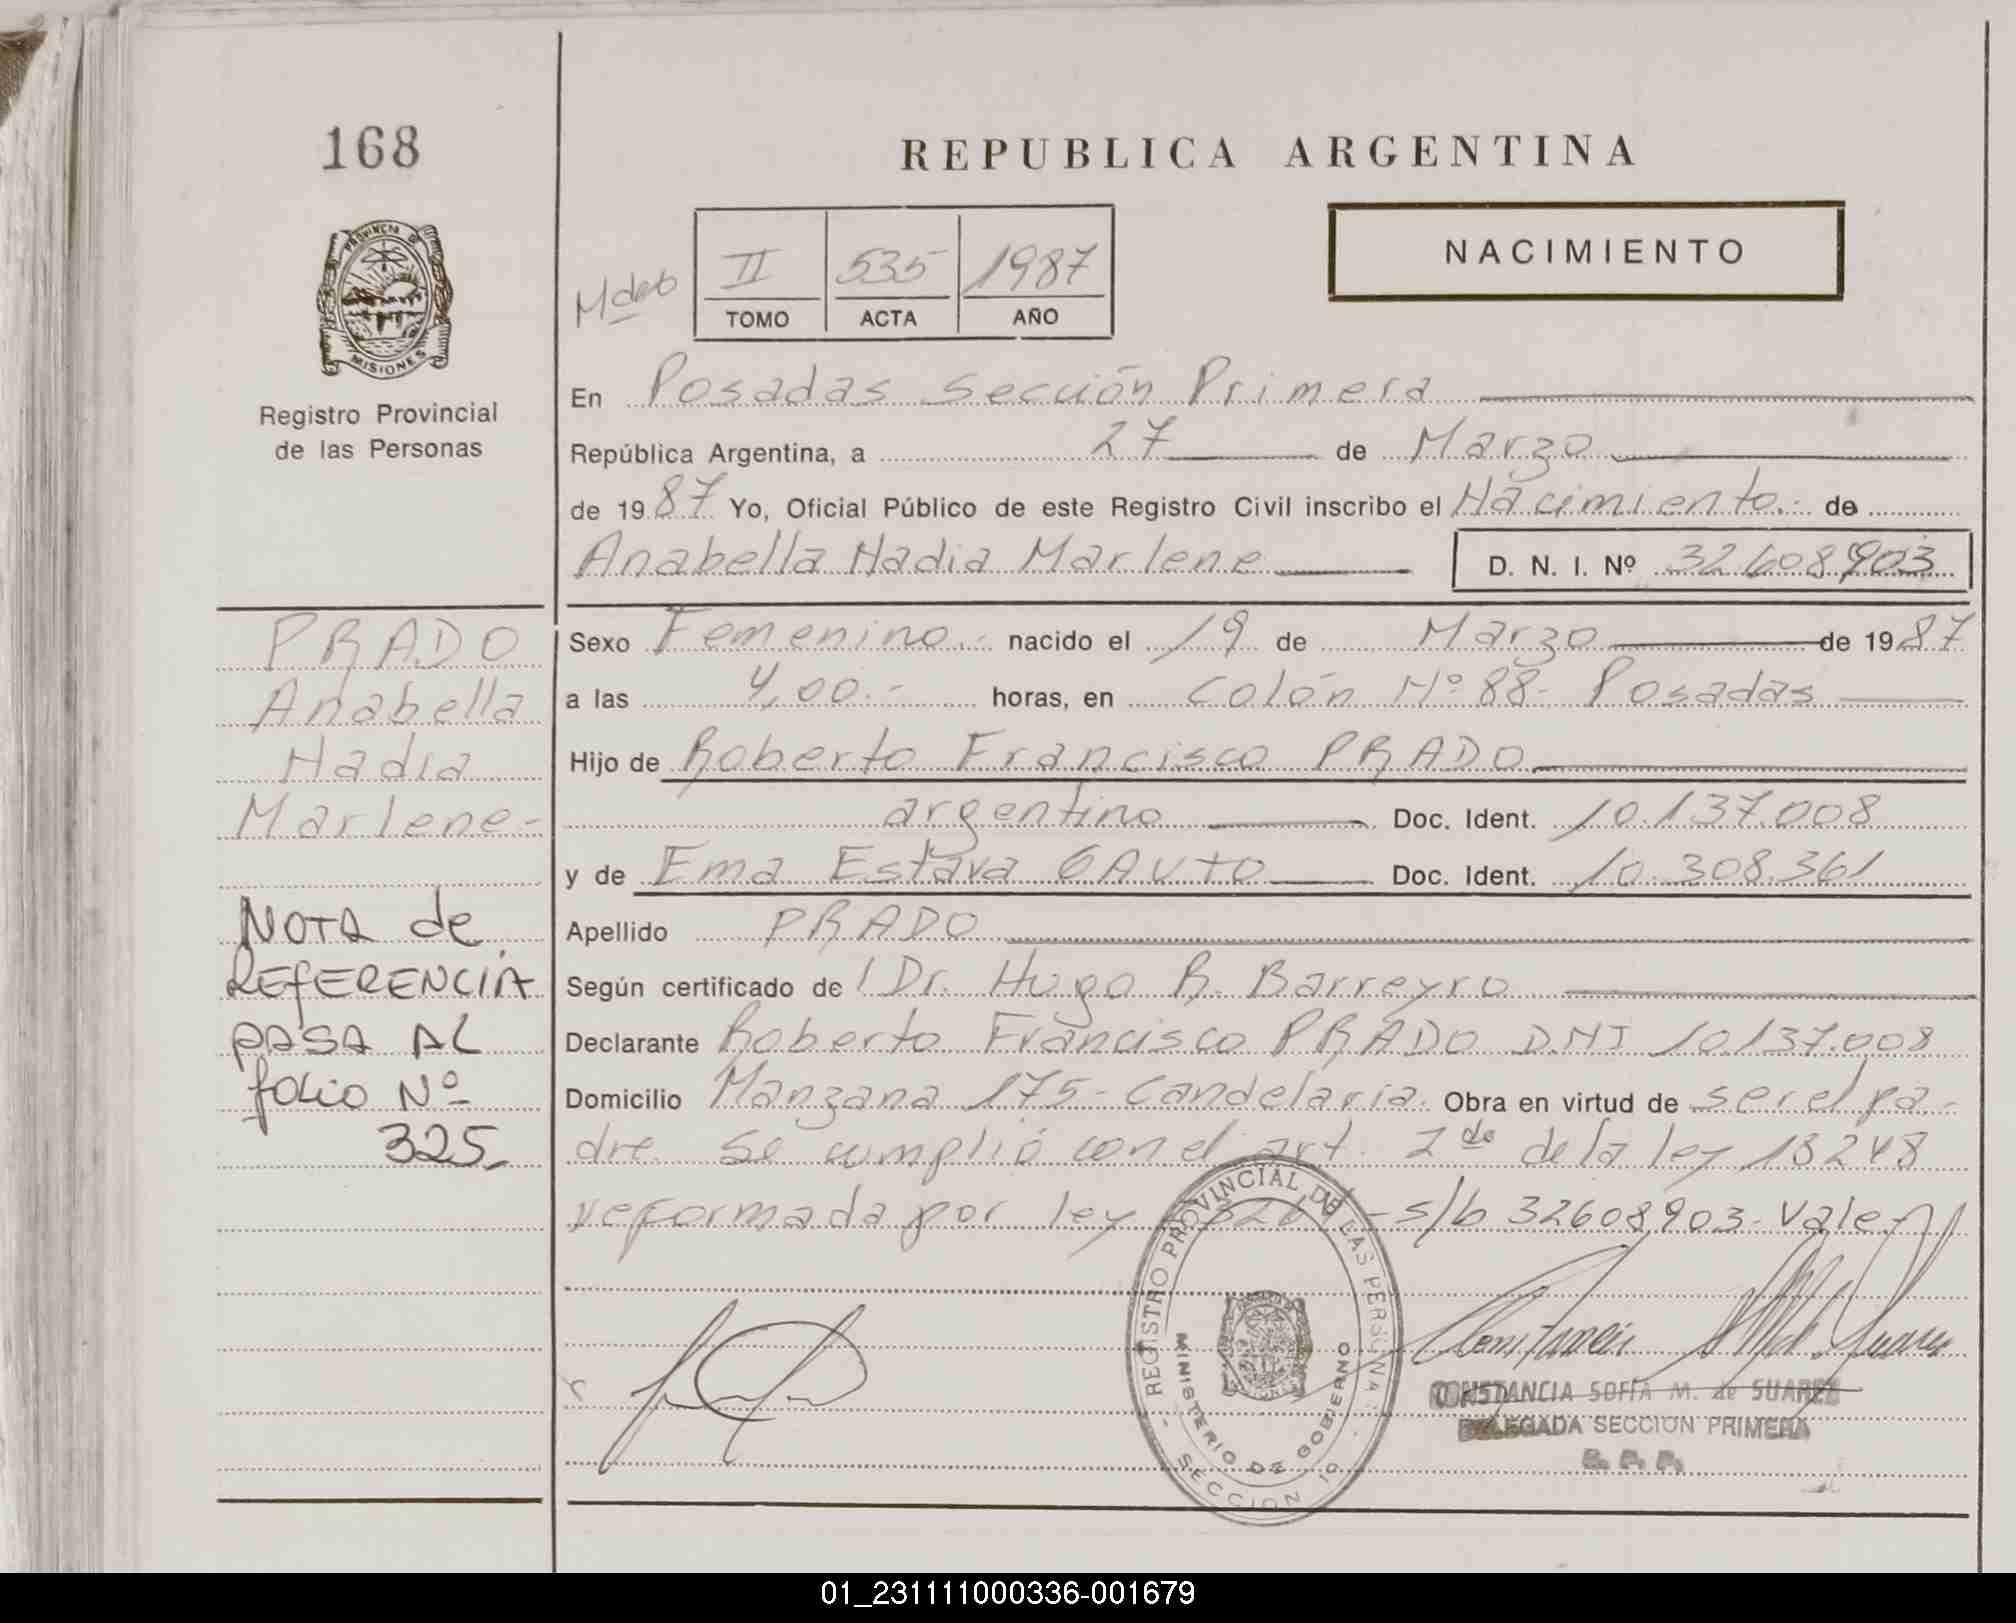 168
REPUBLICA ARGENTINA
NACIMIENTO
II 535 1987
TOMO ACTA AÑO
PROVINCIA DE
MISIONES
Registro Provincial
de las Personas
En Posadas Sección Primera
República Argentina, a 27 de Marzo
de 1987 Yo, Oficial Público de este Registro Civil inscribo el Nacimiento.- de
Anabella Nadia Marlene D. N. I. Nº 32608903
PRADO
Anabella
Nadia
Marlene-
NOTA de
REFERENCIA
PASA AL
folio Nº
325-
Sexo Femenino.- nacido el 19 de Marzo de 1987
a las 4,00.- horas, en Colón Nº 88- Posadas
Hijo de Roberto Francisco PRADO
argentino Doc. Ident. 10.137.008
y de Ema Estava GAUTO Doc. Ident. 10.308.361
Apellido PRADO
Según certificado de l Dr. Hugo R. Barreyro
Declarante Roberto Francisco PRADO DNI 10.137.008
Domicilio Manzana 175- Candelaria. Obra en virtud de ser el pa-
dre. Se cumplió con el art. 2do de la ley 13248
reformada por ley - s/b 32608903- Vale-
REGISTRO PROVINCIAL DE LAS PERSONAS
MINISTERIO DE GOBIERNO
SECCION 1º
CONSTANCIA SOFIA M. de SUAREZ
DELEGADA SECCION PRIMERA
R. P. P.
01_231111000336-001679